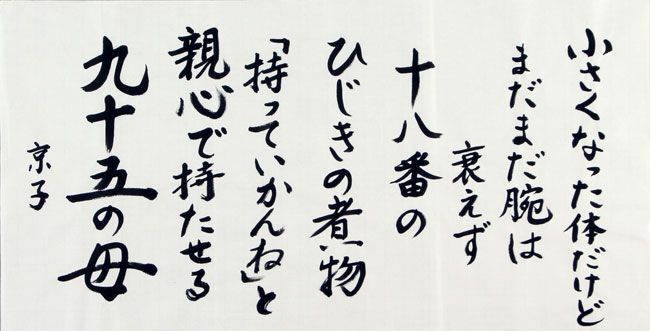 小さくなった体だけど
まだまだ腕は
衰えず
十八番の
ひじきの煮物
「持っていかんね」と
親心で持たせる
九十五の母
京子